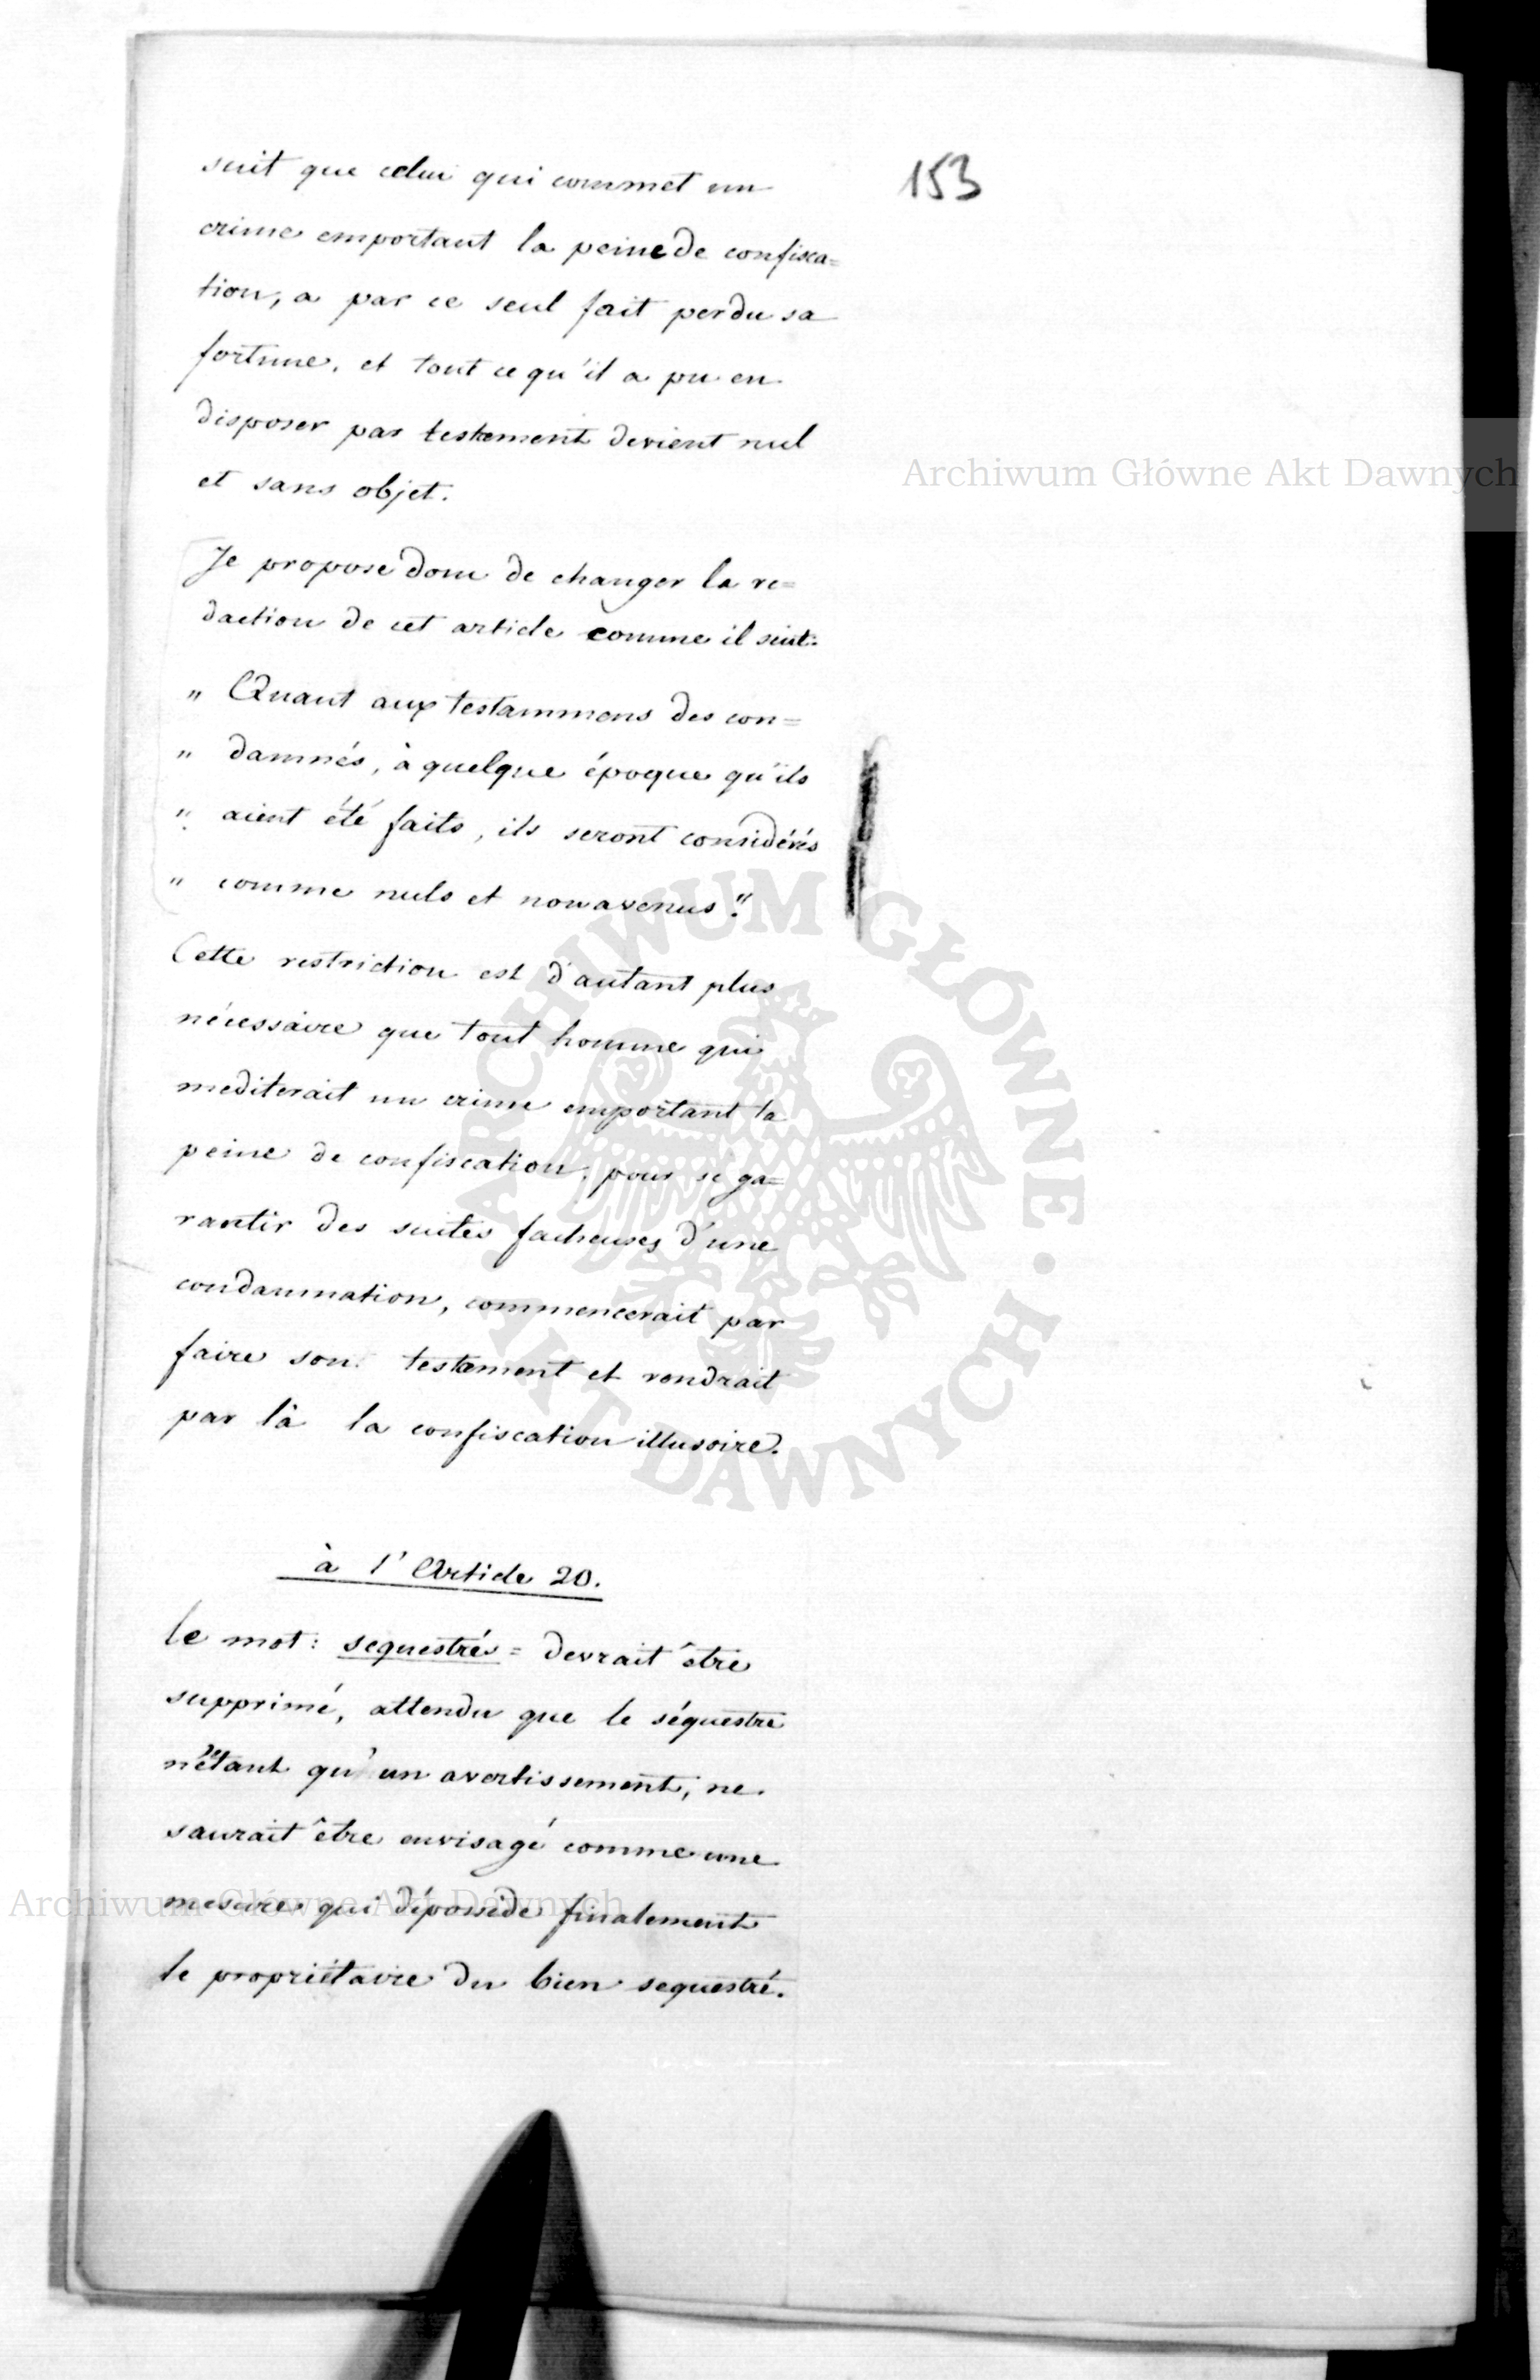 153
suit que celui qui commet un
crime emportant la peine de confisca=
tion, a par ce seul fait perdu sa
fortune, et tout ce qu'il a pu en
disposer par testament devient nul
et sans objet.
Je propose donc de changer la re=
daction de cet article comme il suit:
„ Quant aux testammens des con=
„ damnés, à quelque époque qu'ils
„ aient été faits, ils seront considérés
„ comme nuls et non avenus."
Cette restriction est d'autant plus
nécessaire que tout homme qui
mediterait un crime emportant la
peine de confiscation, pour se ga=
rantir des suites facheuses d'une
condamnation, commencerait par
faire son testament et rendrait
par là la confiscation illusoire.
à l'Article 20.
le mot: sequestrés = devrait être
supprimé, attendu que le séquestre
n'étant qu'un avertissement, ne
saurait être envisagé comme une
mesure qui dépossède finalement
le propriétaire du bien sequestré.
Archiwum Główne Akt Dawnych
ARCHIWUM GŁÓWNE • AKT DAWNYCH
Archiwum Główne Akt Dawnych